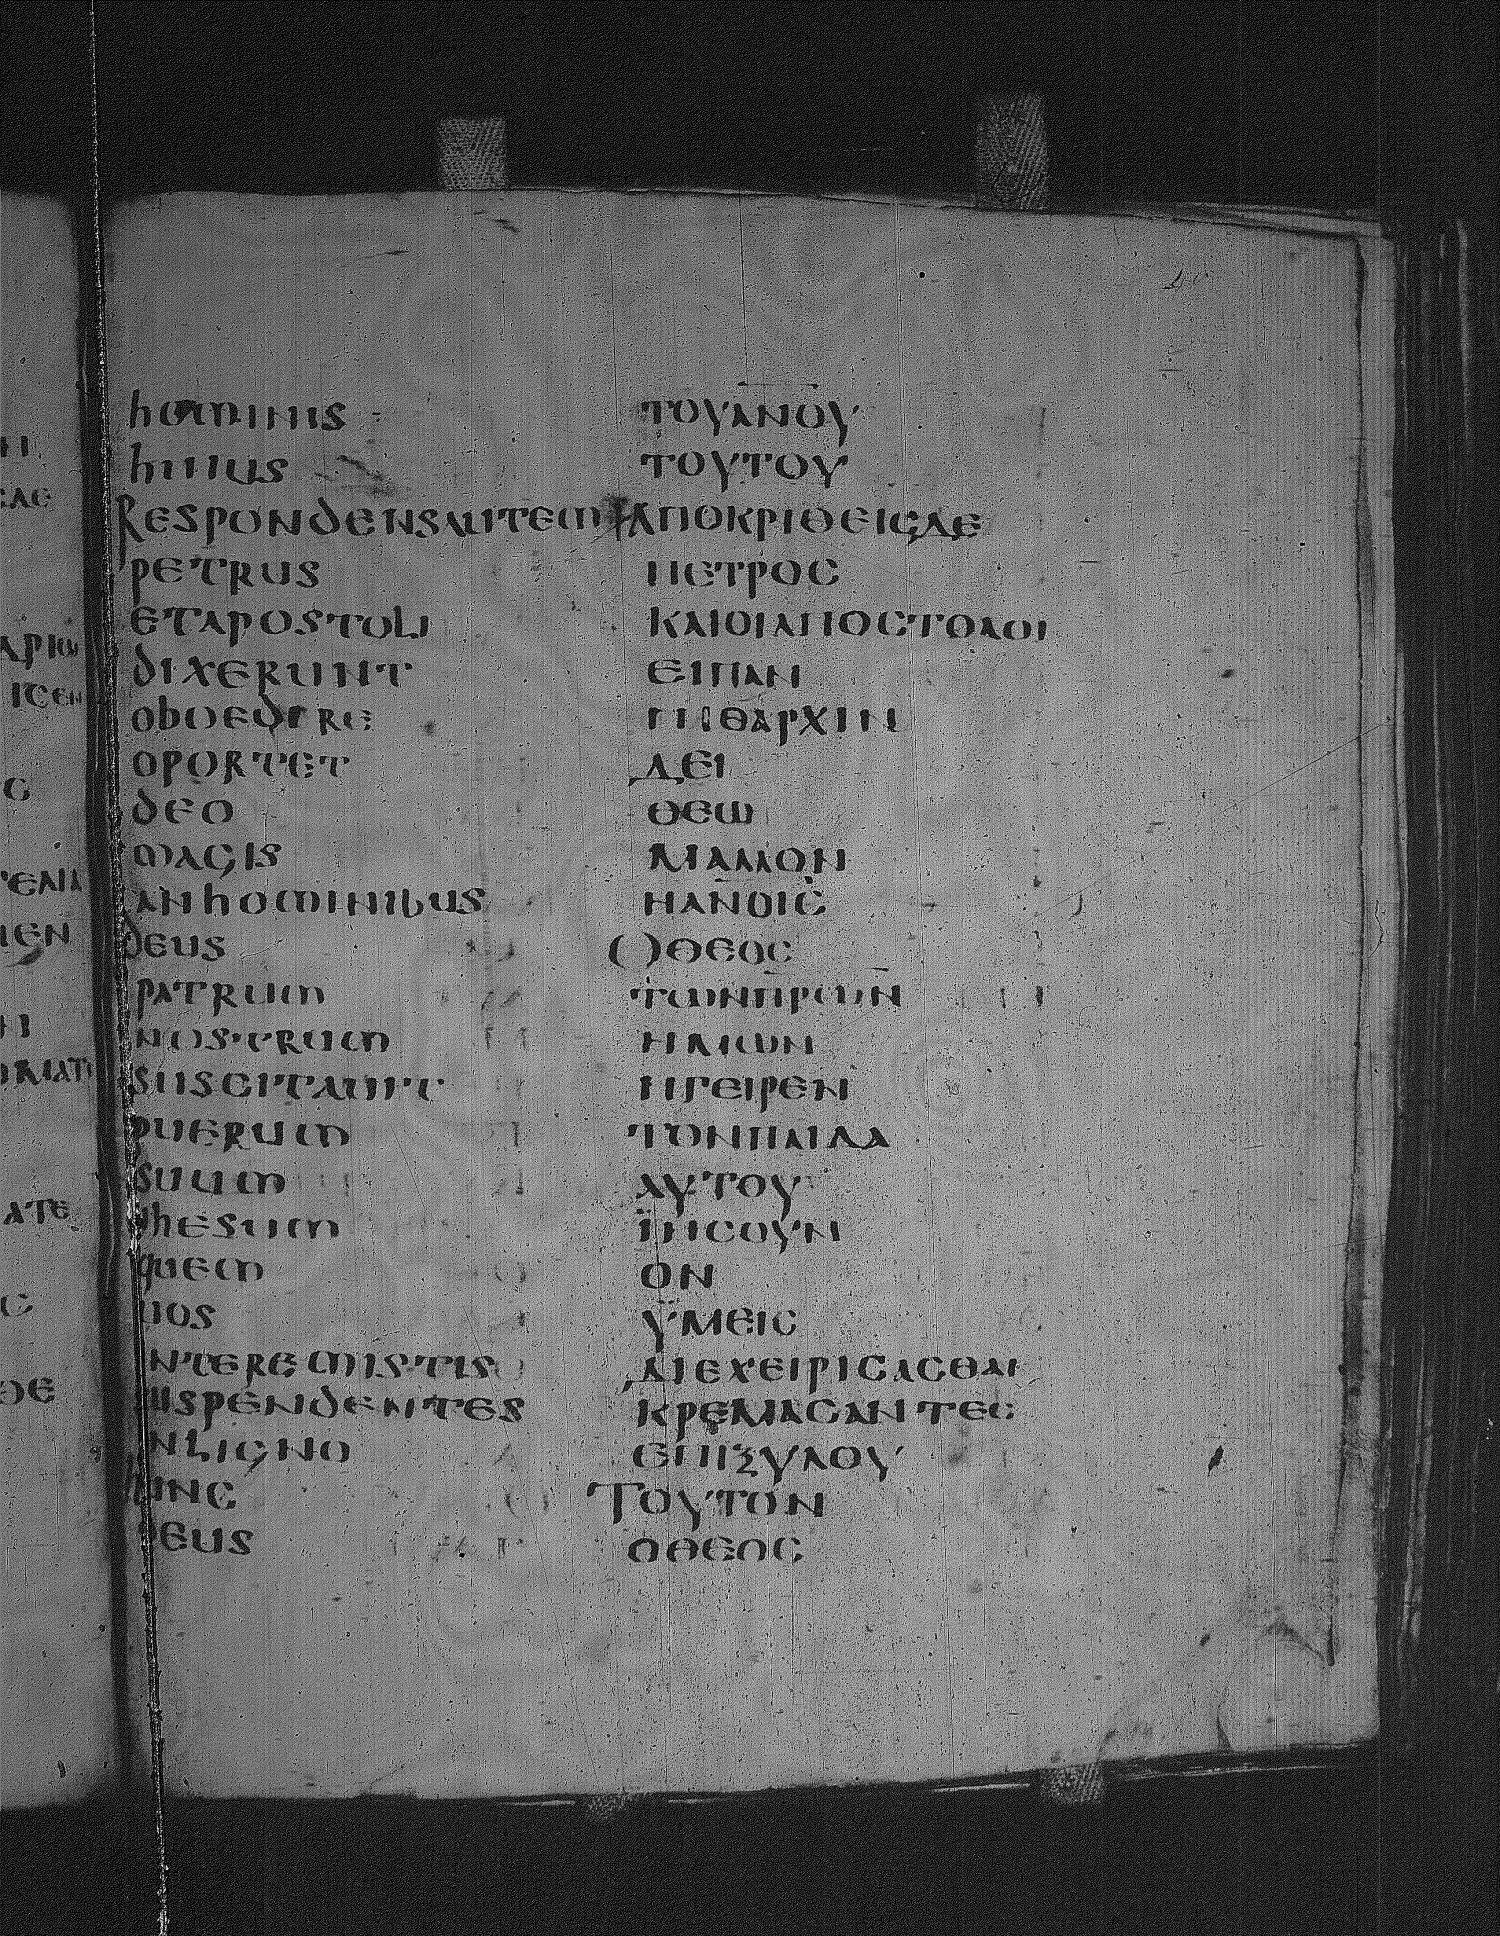 hominis ΤΟΥΑΝΟΥ
huius ΤΟΥΤΟΥ
Respondensautem ΑΠΟΚΡΙΘΕΙСΔΕ
petrus ΠΕΤΡΟС
etapostoli ΚΑΙΟΙΑΠΟСΤΟΛΟΙ
dixerunt ΕΙΠΑΝ
oboedire ΠΙΘΑΡΧΙΝ
oportet ΔΕΙ
deo ΘΕΩ
magis ΜΑΛΛΟΝ
anhominibus ΗΑΝΟΙС
deus ΟΘΕΟС
patrum ΤΩΝΠΡΩΝ
nostrum ΗΜΩΝ
suscitauit ΗΓΕΙΡΕΝ
puerum ΤΟΝΠΑΙΔΑ
suum ΑΥΤΟΥ
ihesum ΪΗСΟΥΝ
quem ΟΝ
uos ΫΜΕΙС
nteremistis ΔΙΕΧΕΙΡΙСΑСΘΑΙ
uspendentes ΚΡΕΜΑСΑΝΤΕС
nligno ΕΠΙΞΥΛΟΥ
hunc ΤΟΥΤΟΝ
deus ΟΘΕΟС